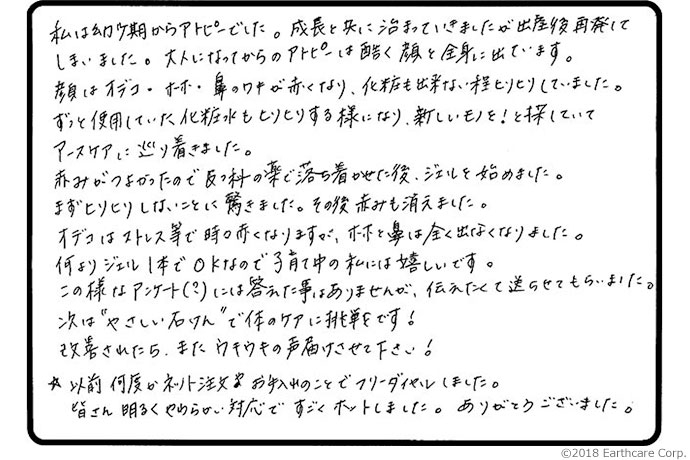 私は幼少期からアトピーでした。成長と共に治まっていきましたが出産後再発して
しまいました。大人になってからのアトピーは酷く顔と全身に出ています。
顔はオデコ・ホホ・鼻のワキが赤くなり、化粧も出来ない程ヒリヒリしていました。
ずっと使用していた化粧水もヒリヒリする様になり、新しいモノを!と探していて
アースケアに巡り着きました。
赤みがつよかったので皮フ科の薬で落ち着かせた後、ジェルを始めました。
まずヒリヒリしないことに驚きました。その後赤みも消えました。
オデコはストレス等で時々赤くなりますが、ホホと鼻は全く出なくなりました。
何よりジェル1本でOKなので子育て中の私には嬉しいです。
この様なアンケート(?)には答えた事はありませんが、伝えたくて送らせてもらいました。
次は"やさしい石けん"で体のケアに挑戦です!
改善されたら、またウキウキの声届けさせて下さい!
☆以前何度かネット注文やお手入れのことでフリーダイヤルしました。
皆さん明るくやわらかい対応ですごくホットしました。ありがとうございました。
©2018 Earthcare Corp.